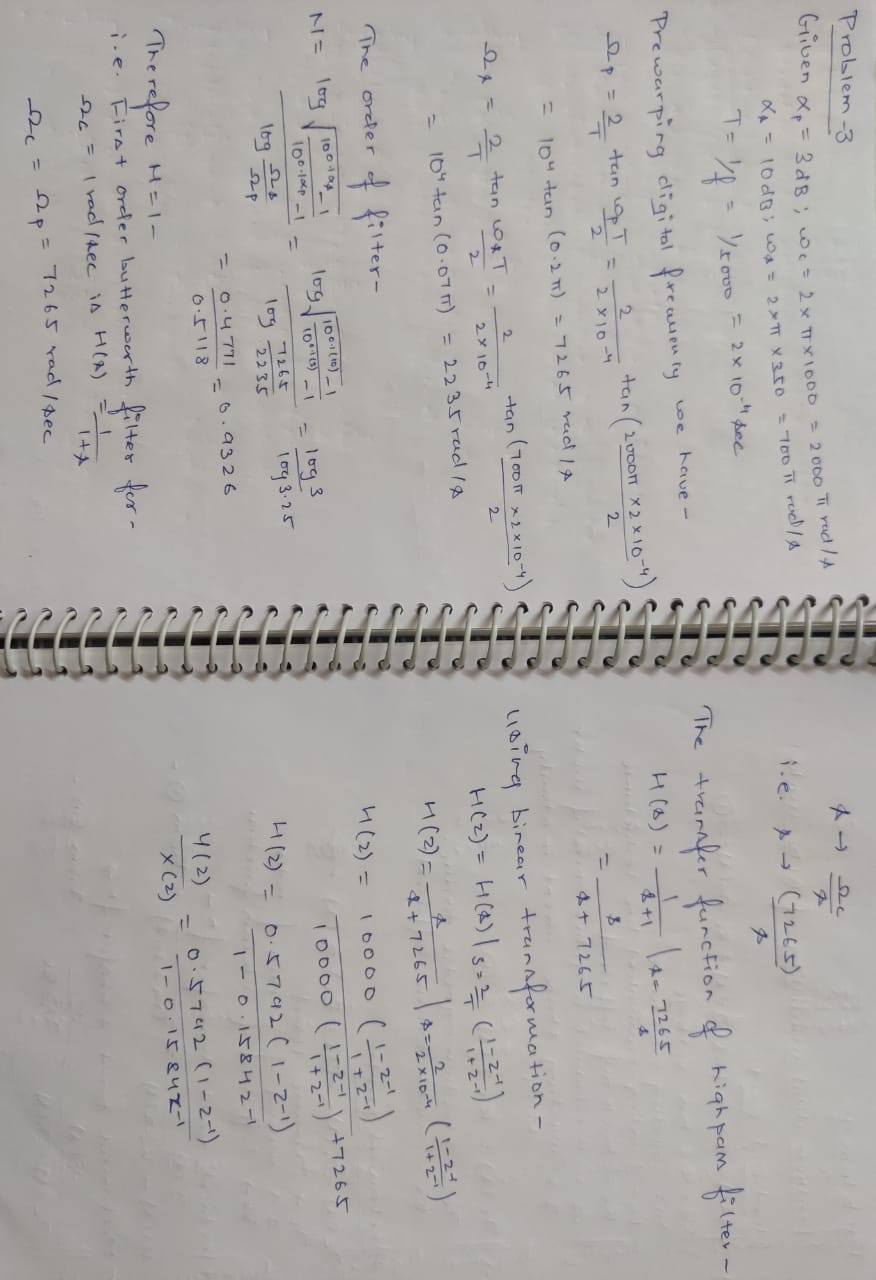 Problem-3
Given αp = 3dB ; ωc = 2×π×1000 = 2000 π rad/s
αs = 10dB ; ωs = 2×π×350 = 700 π rad/s
T = 1/f = 1/5000 = 2×10⁻⁴ sec
Prewarping digital frequency we have -
Ωp = 2/T tan ωpT/2 = 2/2×10⁻⁴ tan (2000π×2×10⁻⁴/2)
= 10⁴ tan (0.2π) = 7265 rad/s
Ωs = 2/T tan ωsT/2 = 2/2×10⁻⁴ tan (700π×2×10⁻⁴/2)
= 10⁴ tan (0.07π) = 2235 rad/s
The order of filter-
N = log √(10^0.1αs -1/10^0.1αp -1) / log Ωs/Ωp = log √(10^0.1(10) -1/10^0.1(3) -1) / log 7265/2235 = log 3/log 3.25
= 0.4771/0.5118 = 0.9326
Therefore N = 1 -
i.e. First order butterworth filter for-
Ωc = 1 rad/sec is H(s) = 1/1+s
Ωc = Ωp = 7265 rad/sec
s → Ωc/s
i.e. s → (7265)/s
The transfer function of highpass filter-
H(s) = 1/s+1 | s = 7265/s
= s/s+7265
Using binear transformation-
H(z) = H(s) | s = 2/T (1-z⁻¹/1+z⁻¹)
H(z) = s/s+7265 | s = 2/2×10⁻⁴ (1-z⁻¹/1+z⁻¹)
H(z) = 10000 (1-z⁻¹/1+z⁻¹) / 10000 (1-z⁻¹/1+z⁻¹) + 7265
H(z) = 0.5792 (1-z⁻¹) / 1-0.1584z⁻¹
Y(z)/X(z) = 0.5792 (1-z⁻¹) / 1-0.1584z⁻¹